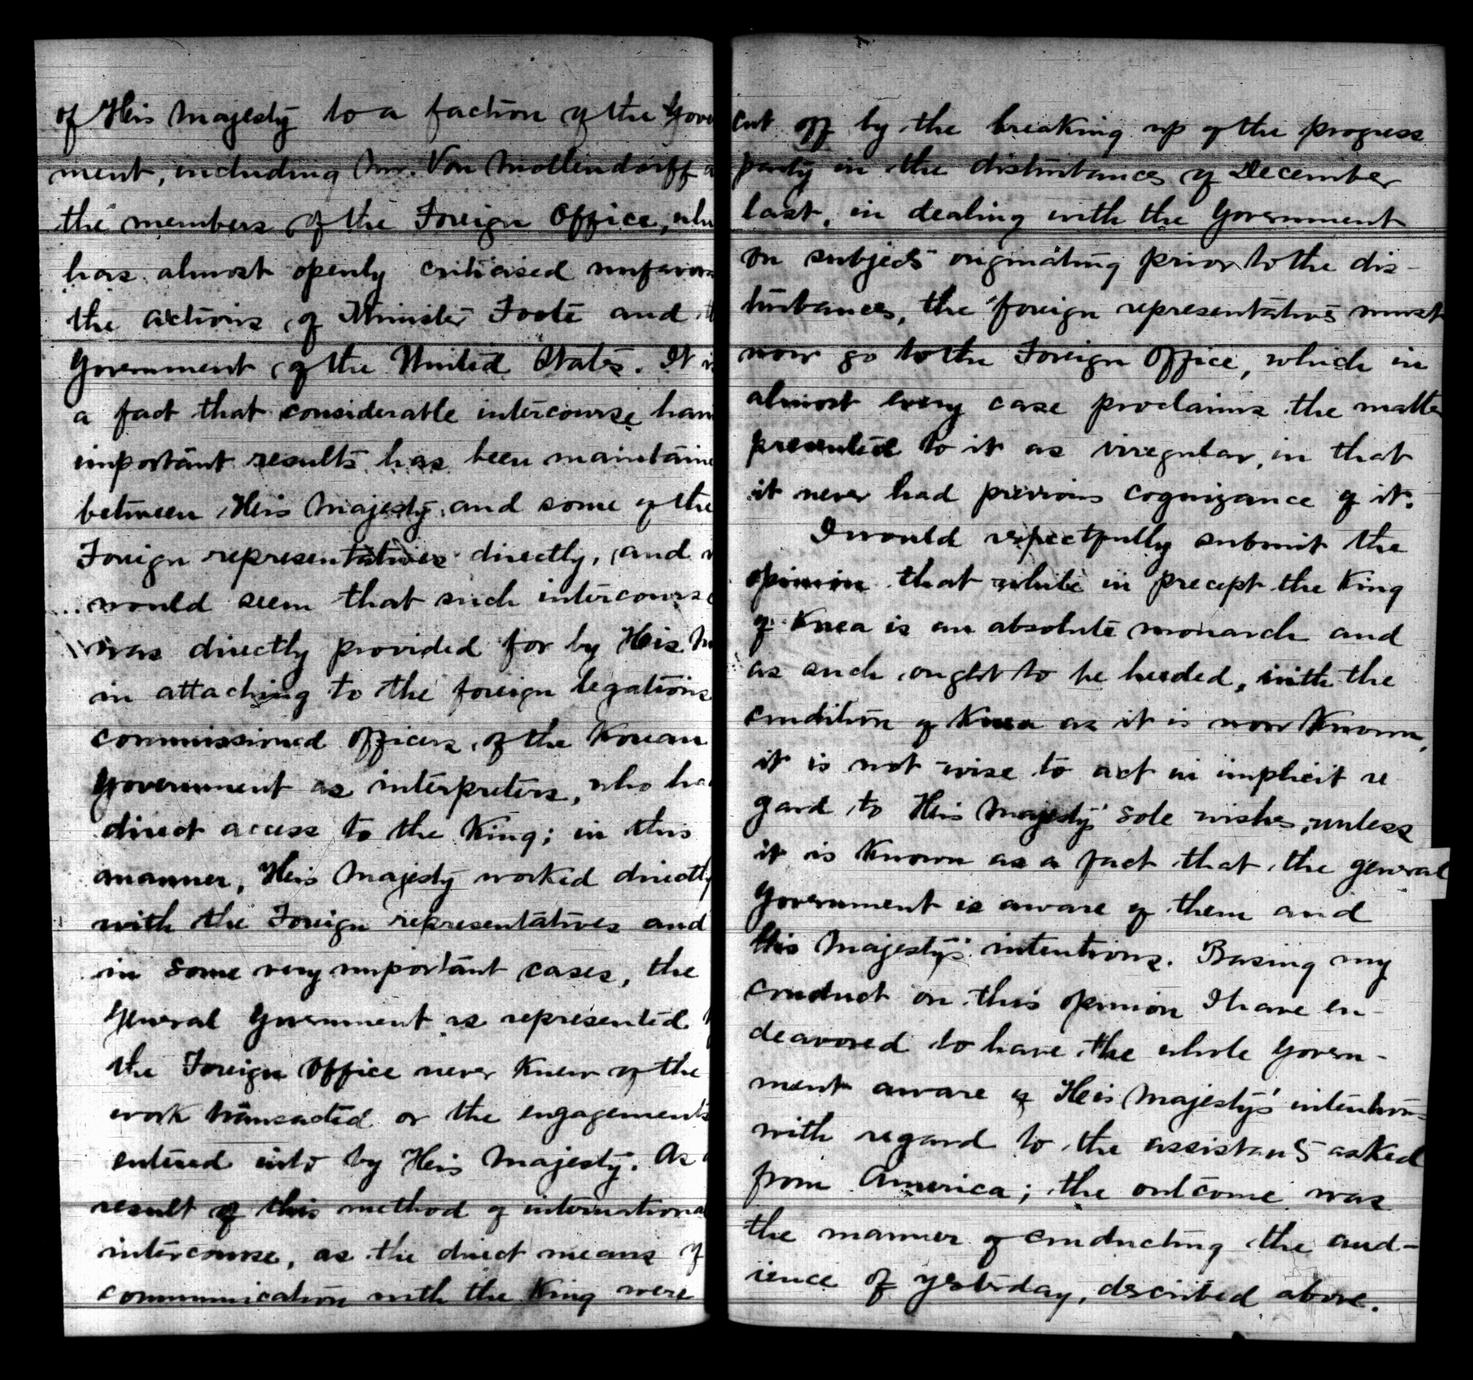 of His Majesty to a faction of the Gove
ment, including Mr. Von Mollendorff a
the members of the Foreign Office, who
has almost openly criticised unfavora
the actions of Minister Foote and t
Government of the United States. It i
a fact that considerable intercourse hav
important results has been maintaine
between His Majesty and some of the
Foreign representatives directly, and
would seem that such intercourse
was directly provided for by His M
in attaching to the foreign legations
commissioned officers of the Korean
Government as interpreters, who ha
direct access to the King; in this
manner, His Majesty worked directly
with the Foreign representatives and
in some very important cases, the
General Government as represented
the Foreign Office never knew of the
work transacted or the engagements
entered into by His Majesty. As
result of this method of internationa
intercourse, as the direct means of
communication with the King were
cut off by the breaking up of the progress
party in the disturbances of December
last, in dealing with the Government
on subjects originating prior to the dis-
turbances, the foreign representatives must
now go to the Foreign Office, which in
almost every case proclaims the matter
presented to it as irregular, in that
it never had previous cognizance of it.
I would respectfully submit the
opinion that while in precept the King
of Korea is an absolute monarch and
as such ought to be heeded, with the
condition of Korea as it is now known,
it is not wise to act in implicit re
gard to His Majesty's sole wishes, unless
it is known as a fact that the general
Government is aware of them and
His Majesty's intentions. Basing my
conduct on this opinion I have en-
deavored to have the whole Govern-
ment aware of His Majesty's intentions
with regard to the assistants asked
from America; the outcome was
the manner of conducting the aud-
ience of yesterday, described above.